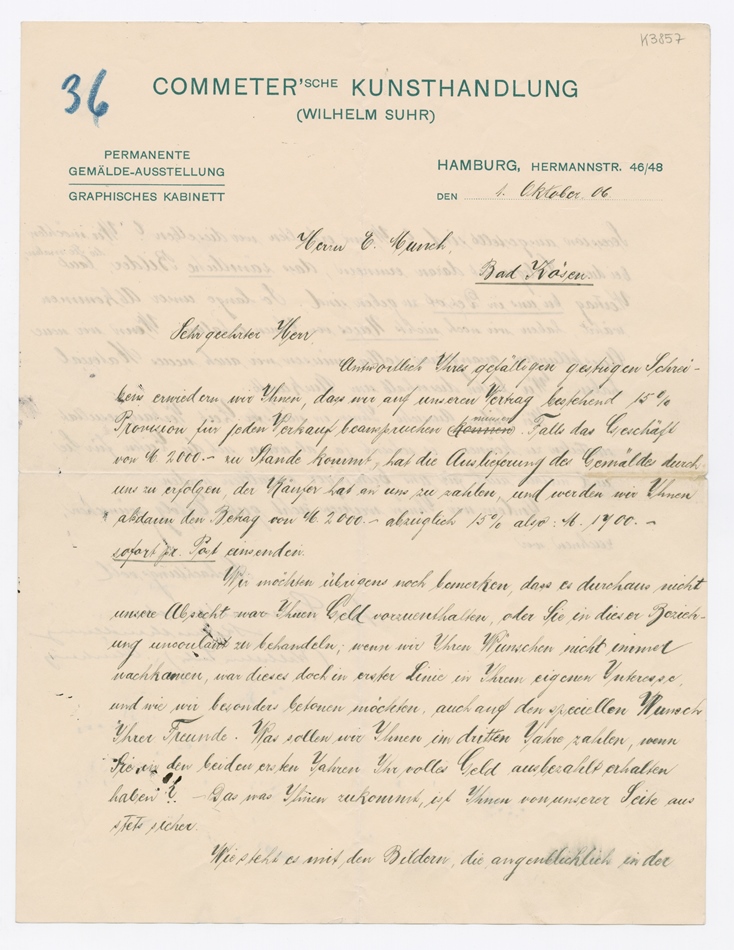 K3857
36
COMMETER'SCHE KUNSTHANDLUNG
(WILHELM SUHR)
PERMANENTE
GEMÄLDE-AUSSTELLUNG
GRAPHISCHES KABINETT
HAMBURG, HERMANNSTR. 46/48
DEN 1. Oktober. 06.
Herrn E. Munch,
Bad Kösen.
Sehr geehrter Herr,
Antwortlich Ihres gefälligen gestrigen Schrei-
bens erwiedern wir Ihnen, dass wir auf unseren Vertrag bestehend 15%
Provision für jeden Verkauf beanspruchen können müssen. Falls das Geschäft
von M 2000.- zu Stande kommt, hat die Auslieferung des Gemäldes durch
uns zu erfolgen, der Käufer hat an uns zu zahlen, und werden wir Ihnen
alsdann den Betrag von M. 2000.- abzüglich 15% also: M. 1700.-
sofort pr. Post einsenden.
Wir möchten übrigens noch bemerken, dass es durchaus nicht
unsere Absicht war Ihnen Geld vorzuenthalten, oder Sie in dieser Bezieh-
ung unvoulant zu behandeln; wenn wir Ihren Wünschen nicht immer
nachkamen, war dieses doch in erster Linie in Ihrem eigenen Interesse,
und wie wir besonders betonen möchten, auch auf den speciellen Wunsch
Ihrer Freunde. Was sollen wir Ihnen im dritten Jahre zahlen, wenn
Sie in den beiden ersten Jahren Ihr volles Geld ausbezahlt erhalten
haben ?. - Das was Ihnen zukommt, ist Ihnen von unserer Seite aus
stets sicher.
Wie steht es mit den Bildern, die augenblicklich in der